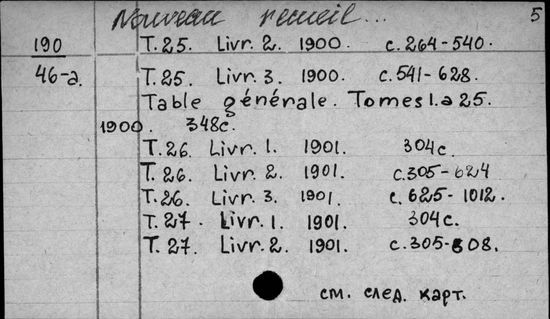 Nouveau recueil... 5
190 T. 25. Livr. 2. 1900. c. 264-540.
46-a. T. 25. Livr. 3. 1900. c. 541-628.
Table générale. Tomes 1. a 25.
1900. 348c.
T. 26. Livr. 1. 1901. 304 c.
T. 26. Livr. 2. 1901. c. 305-624
T. 26. Livr. 3. 1901. c. 625-1012.
T. 27. Livr. 1. 1901. 304 c.
T. 27. Livr. 2. 1901. c. 305-608.
см. след. карт.